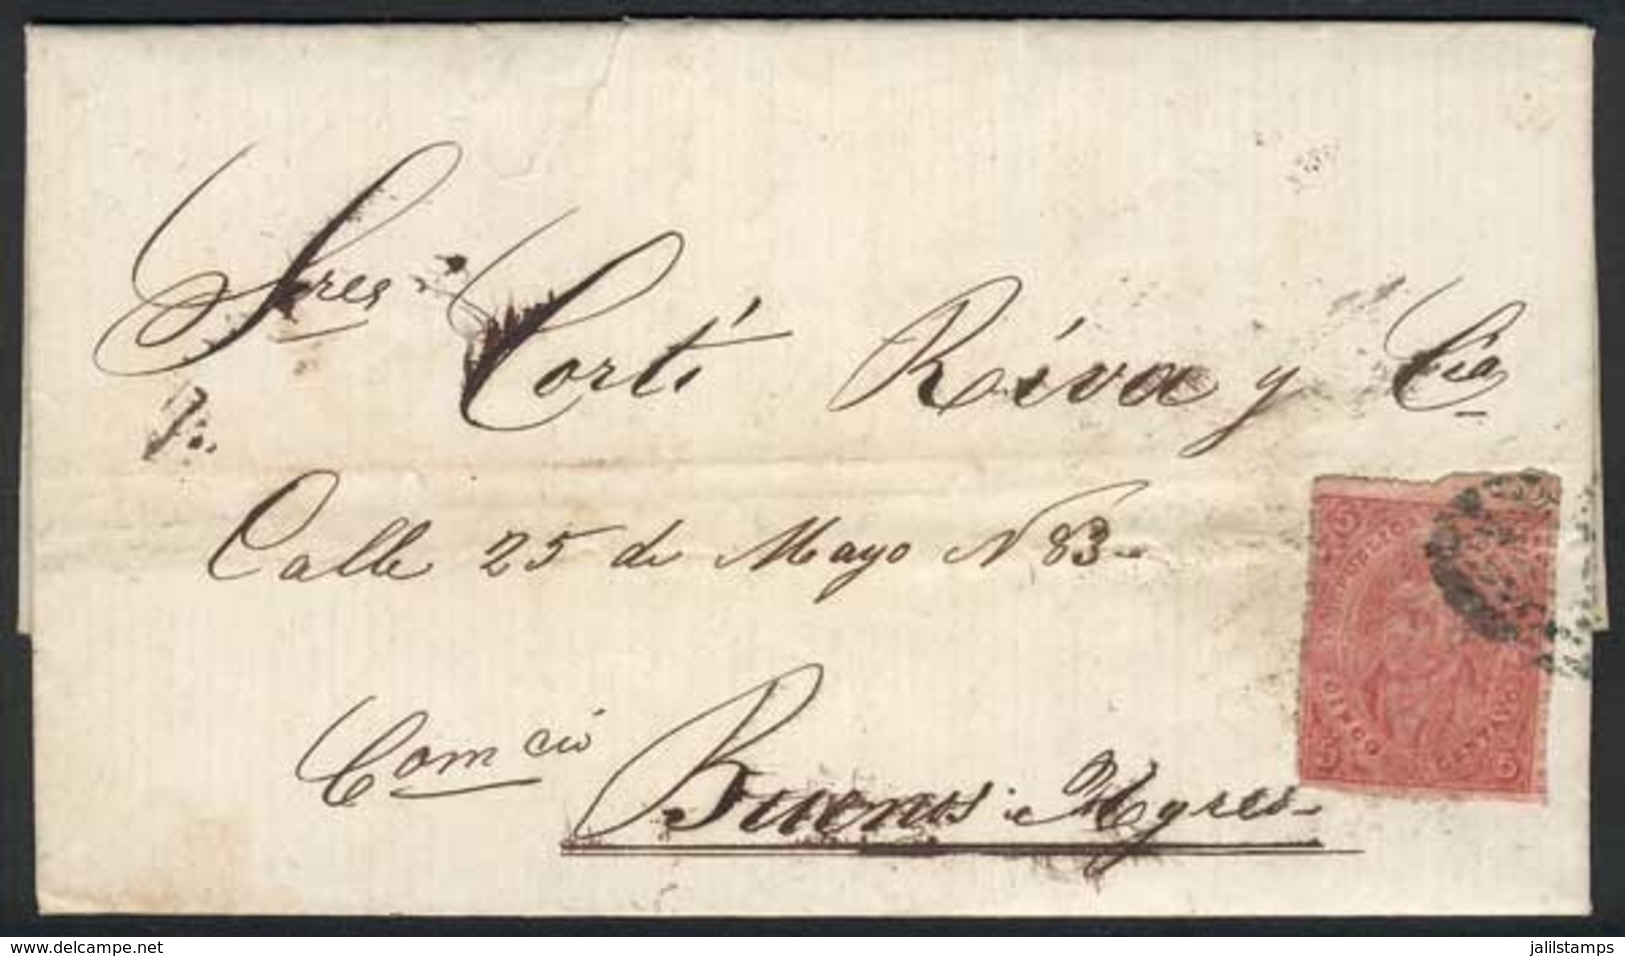 Sres Corti Riva y Cia
Calle 25 de Mayo N 83
Comcio Buenos Ayres
5 5
CINCO CENTAVOS
5 5
www.delcampe.net
jalilstamps